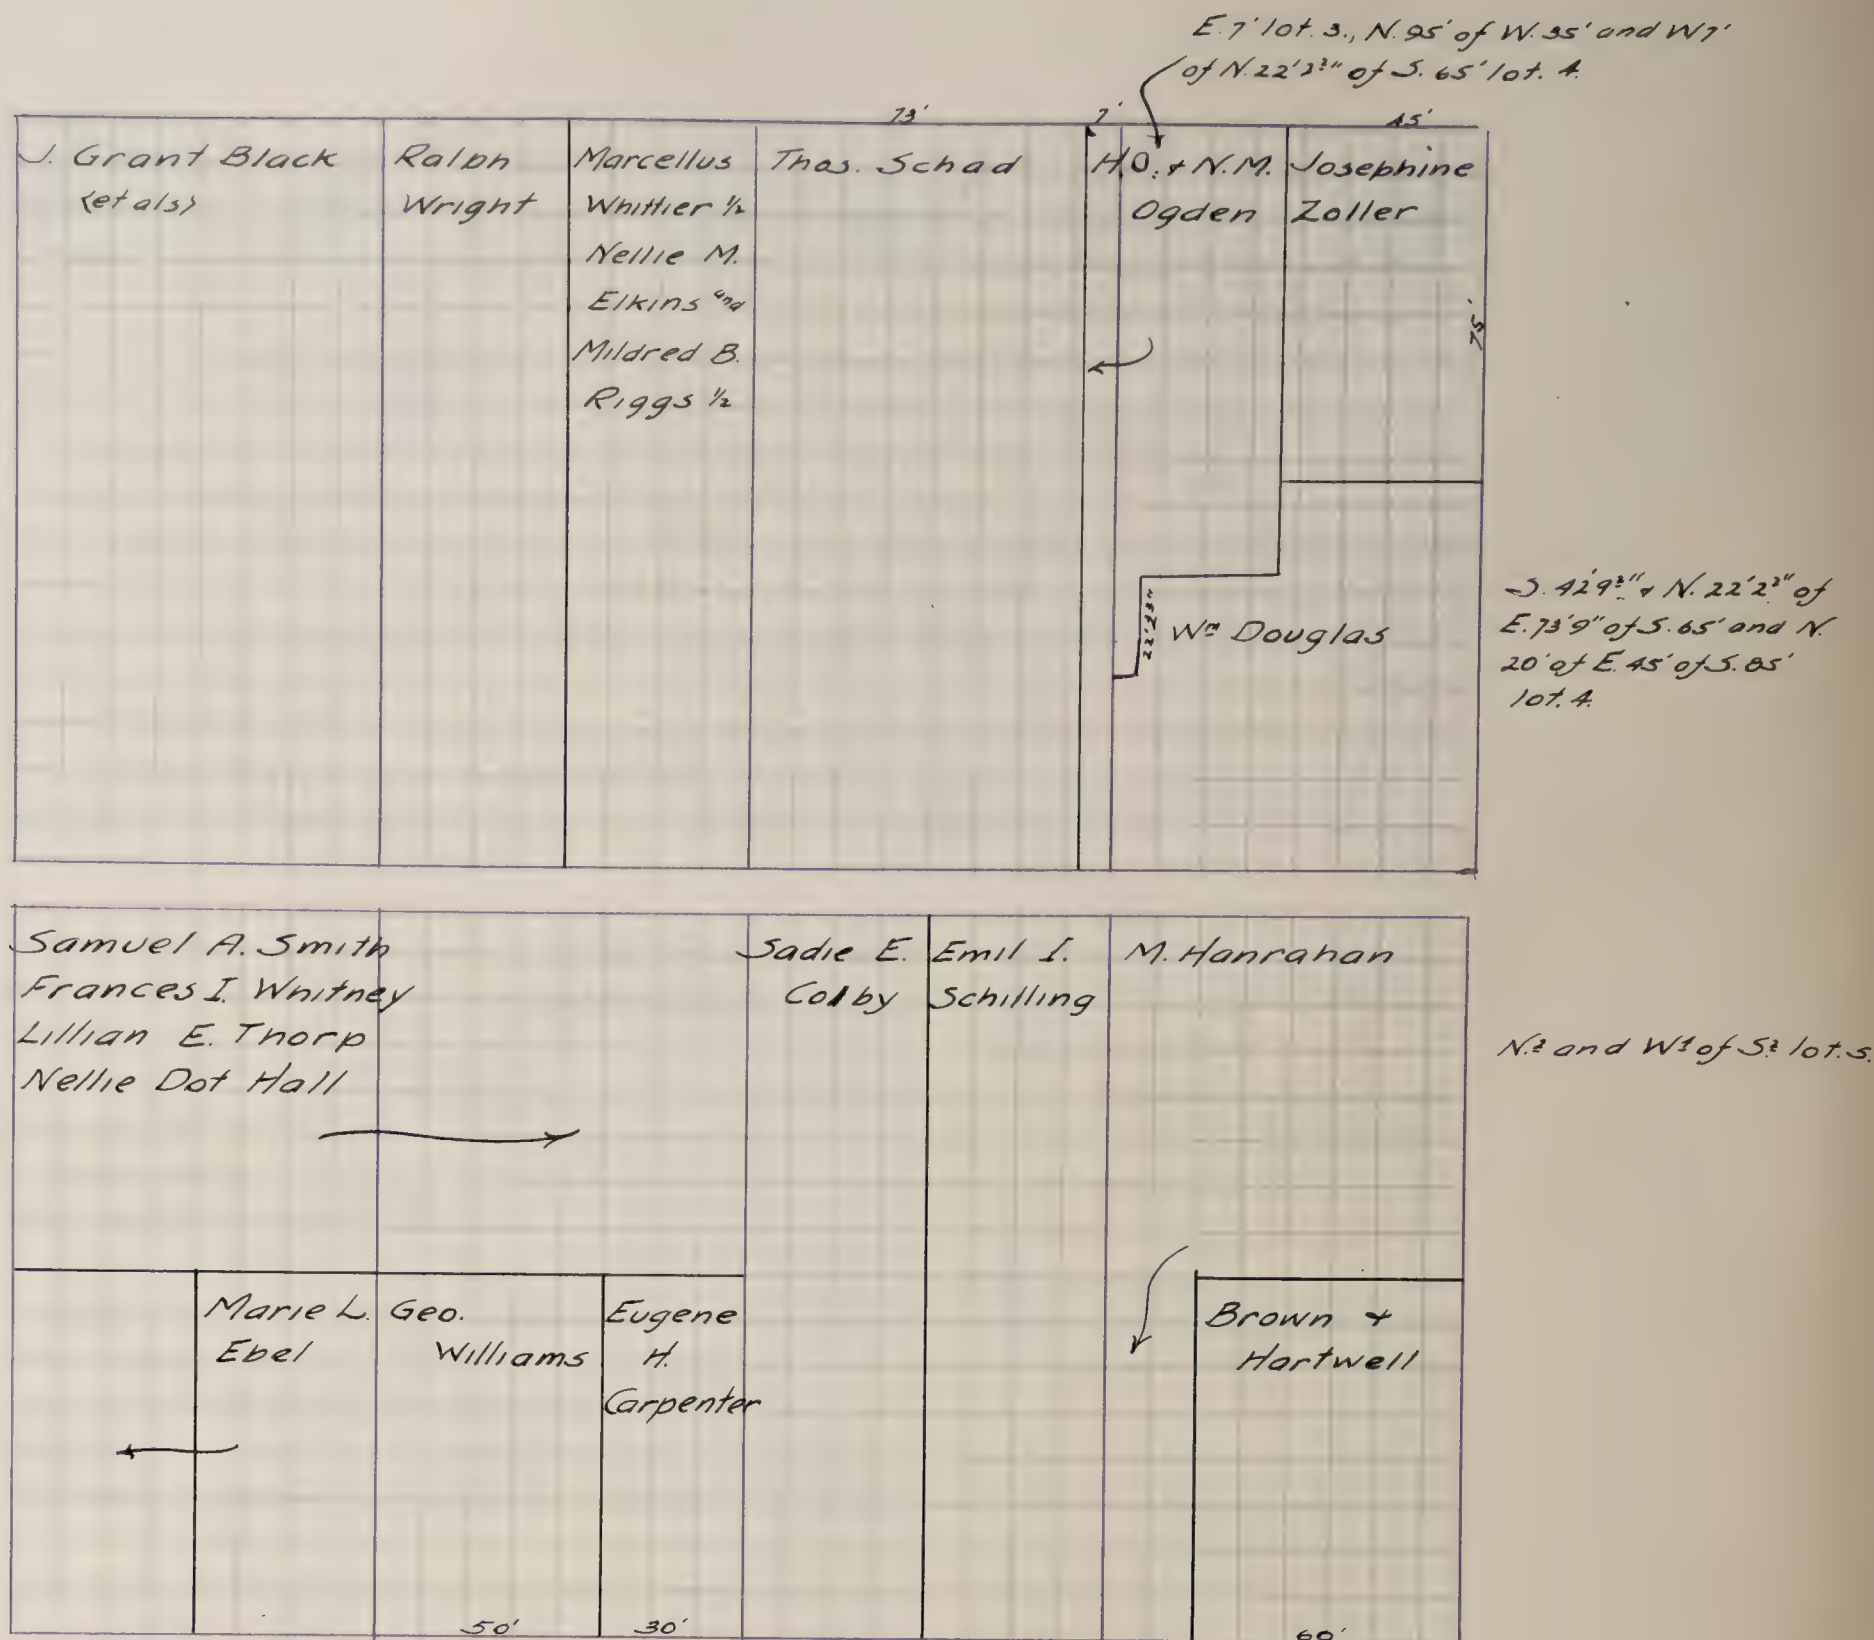 E. 7' lot. 3., N. 95' of W. 35' and W 7'
of N. 22' 2¾" of S. 65' lot. 4.
73'
7'
45'
J. Grant Black
(et als)
Ralph
Wright
Marcellus
Whittier ½
Nellie M.
Elkins and
Mildred B.
Riggs ½
Thos. Schad
H.O. & N.M.
Ogden
Josephine
Zoller
75'
22'2¾"
Wm Douglas
S. 42'9¾" & N. 22'2¾" of
E. 73'9" of S. 65' and N.
20' of E. 45' of S. 85'
lot. 4.
Samuel A. Smith
Frances I. Whitney
Lillian E. Thorp
Nellie Dot Hall
Sadie E.
Colby
Emil I.
Schilling
M. Hanrahan
N.½ and W¼ of S.½ lot. 5.
Marie L.
Ebel
Geo.
Williams
Eugene
H.
Carpenter
Brown &
Hartwell
50'
30'
60'